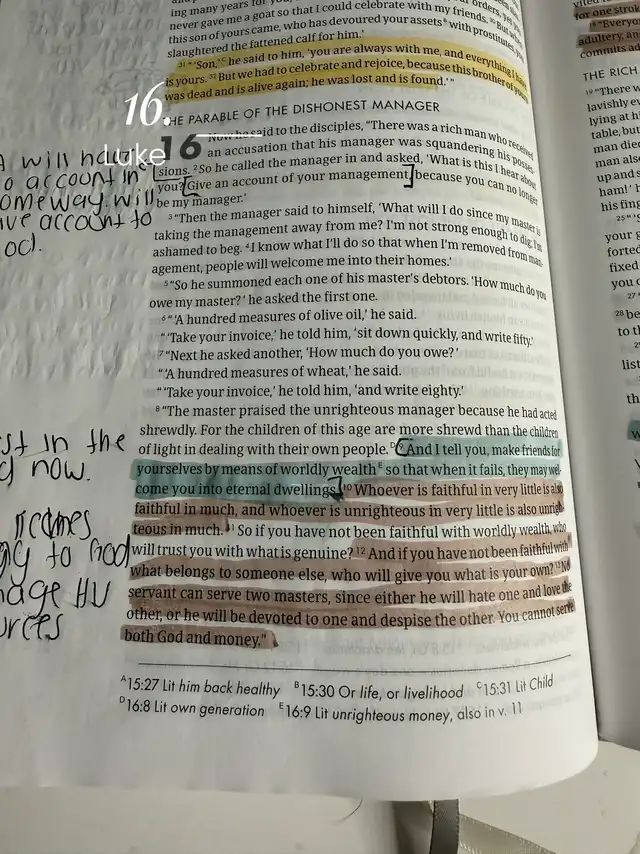 ing many years for you,
never gave me a goat so that I could celebrate with my friends. ³⁰ But when
this son of yours came, who has devoured your assetsᴮ with prostitutes, you
slaughtered the fattened calf for him.'
³¹ "'Son,'ᶜ he said to him, 'you are always with me, and everything I have
is yours. ³² But we had to celebrate and rejoice, because this brother of yours
was dead and is alive again; he was lost and is found.'"
16.
Luke
THE PARABLE OF THE DISHONEST MANAGER
16 Now he said to the disciples, "There was a rich man who received
an accusation that his manager was squandering his posses-
sions. ² So he called the manager in and asked, 'What is this I hear about
you? [Give an account of your management,] because you can no longer
be my manager.'
³ "Then the manager said to himself, 'What will I do since my master is
taking the management away from me? I'm not strong enough to dig; I'm
ashamed to beg. ⁴ I know what I'll do so that when I'm removed from man-
agement, people will welcome me into their homes.'
⁵ "So he summoned each one of his master's debtors. 'How much do you
owe my master?' he asked the first one.
⁶ "'A hundred measures of olive oil,' he said.
"'Take your invoice,' he told him, 'sit down quickly, and write fifty.'
⁷ "Next he asked another, 'How much do you owe?'
"'A hundred measures of wheat,' he said.
"'Take your invoice,' he told him, 'and write eighty.'
⁸ "The master praised the unrighteous manager because he had acted
shrewdly. For the children of this age are more shrewd than the children
of light in dealing with their own people.ᴰ ⁹ And I tell you, make friends for
yourselves by means of worldly wealthᴱ so that when it fails, they may wel-
come you into eternal dwellings. ¹⁰ Whoever is faithful in very little is also
faithful in much, and whoever is unrighteous in very little is also unrigh-
teous in much. ¹¹ So if you have not been faithful with worldly wealth, who
will trust you with what is genuine? ¹² And if you have not been faithful with
what belongs to someone else, who will give you what is your own? ¹³ No
servant can serve two masters, since either he will hate one and love the
other, or he will be devoted to one and despise the other. You cannot serve
both God and money."
ᴬ15:27 Lit him back healthy ᴮ15:30 Or life, or livelihood ᶜ15:31 Lit Child
ᴰ16:8 Lit own generation ᴱ16:9 Lit unrighteous money, also in v. 11
will
account in
way will
account to
in the
now.
to God
THE RICH
¹⁹ "There w
lavishly
lying at
table, but
man
also
up and
ham!'
his fing
²⁵ "'
your
fixed
you
²⁷ "'
²⁸ be
to
list
th